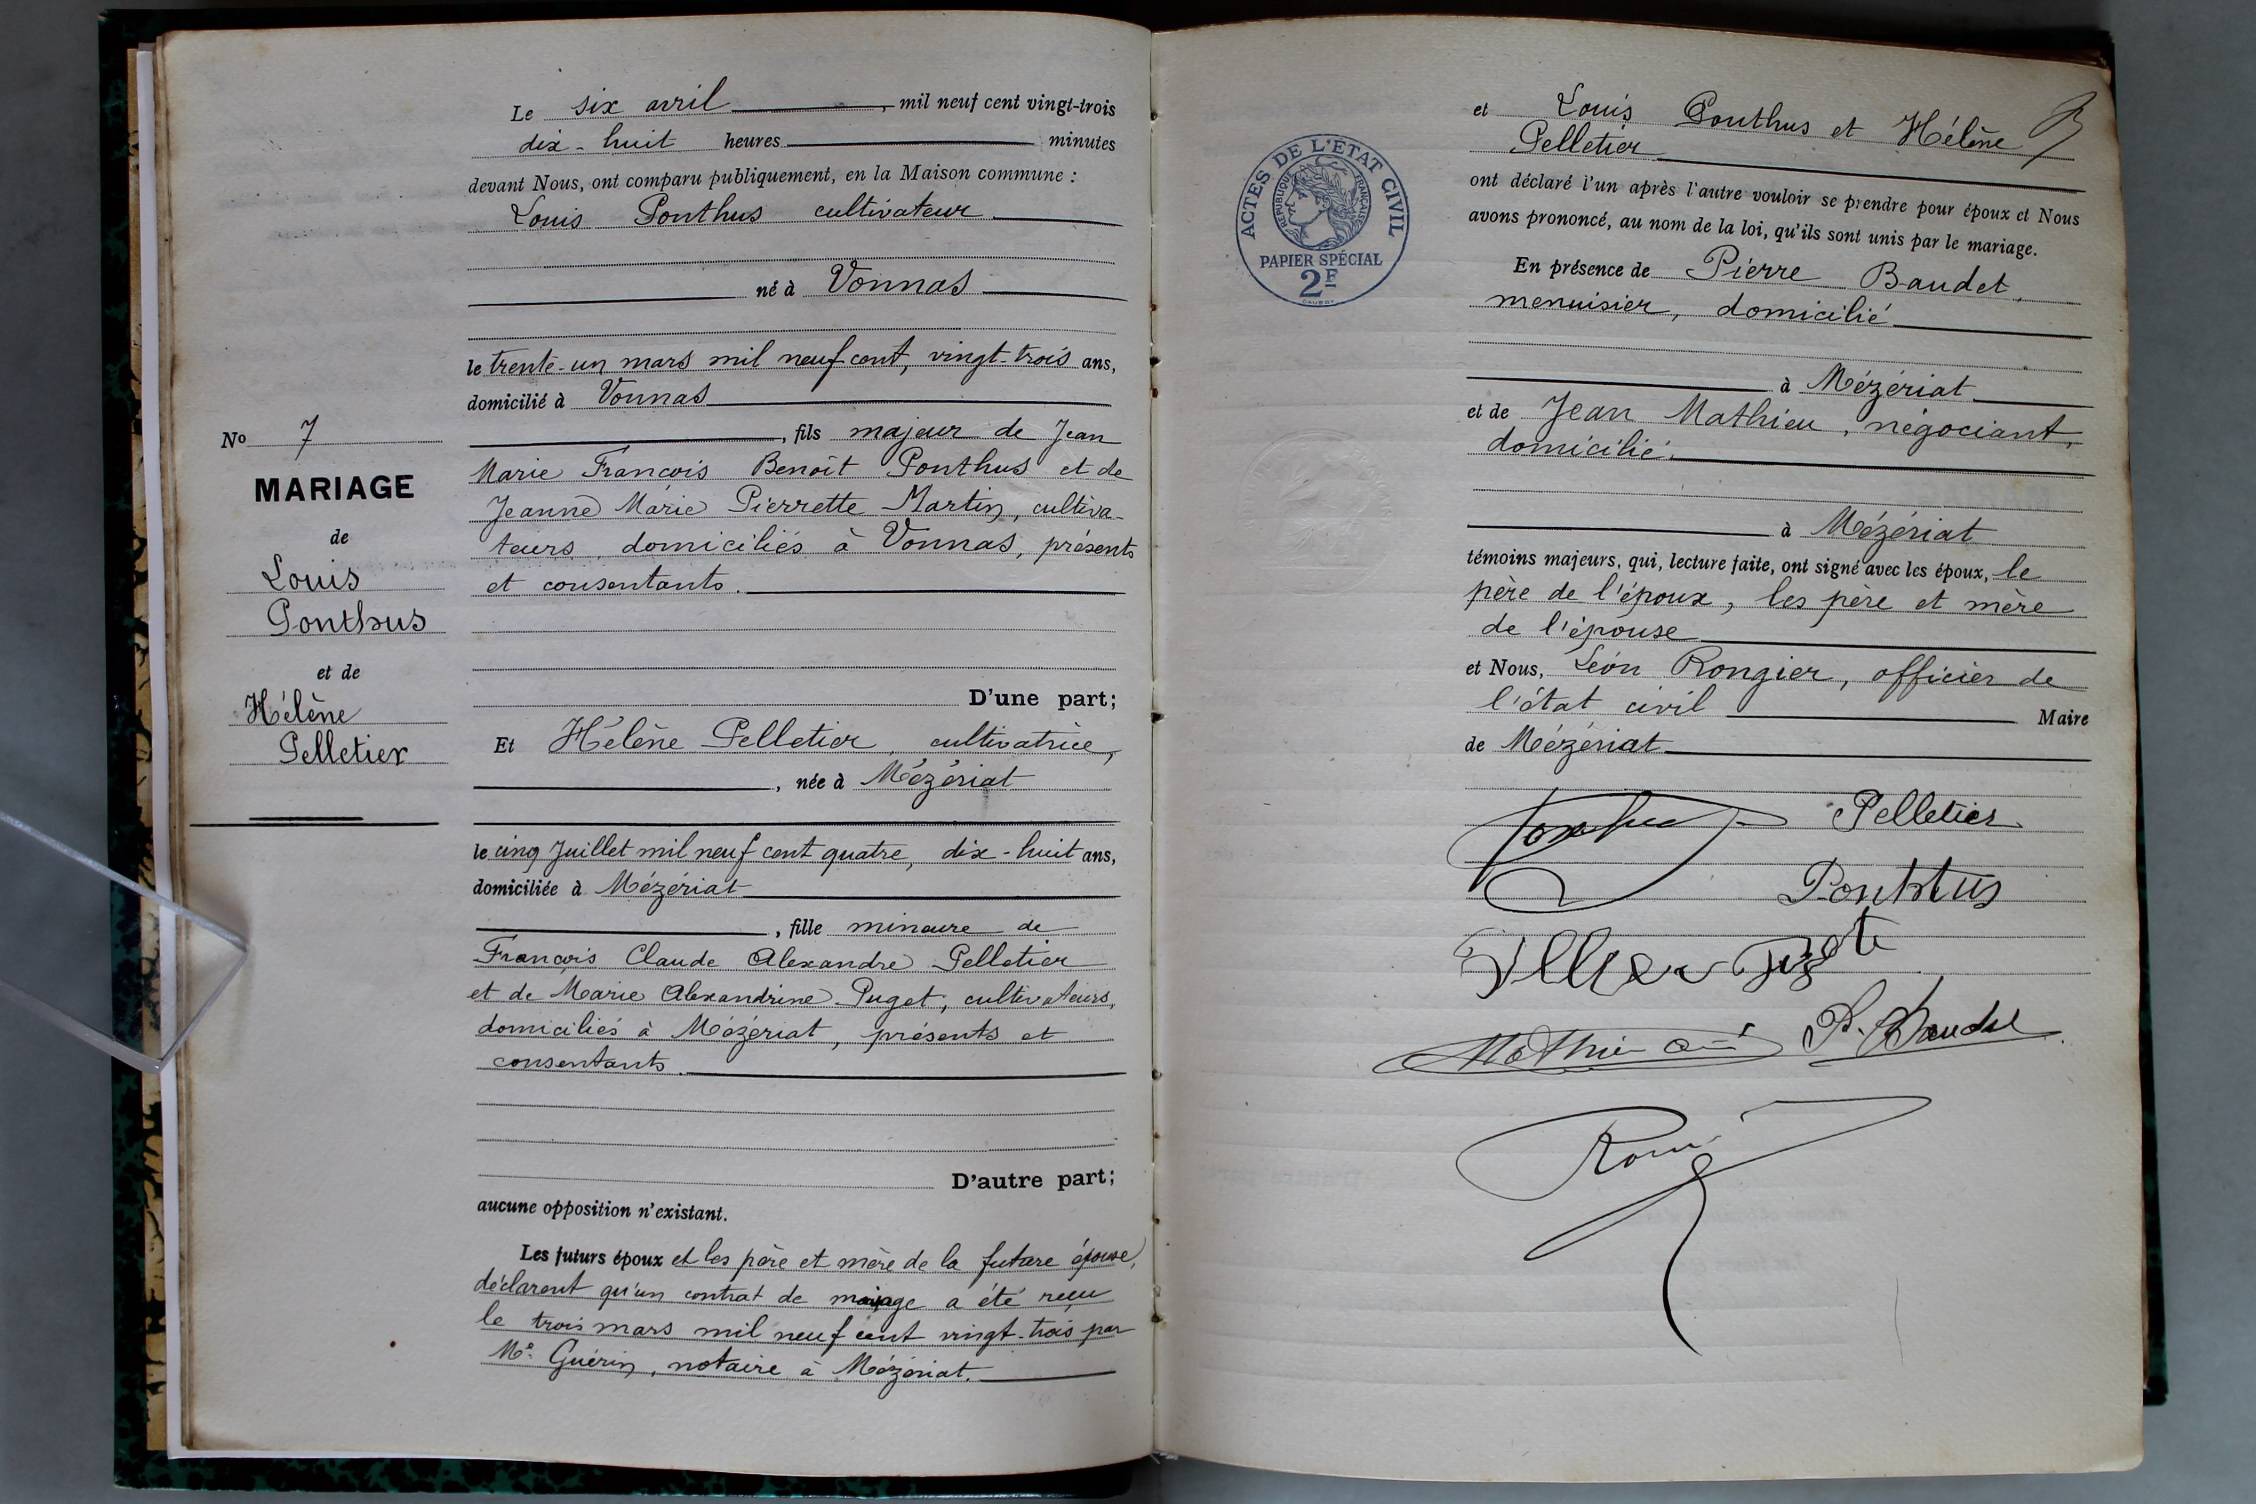 Le six avril, mil neuf cent vingt-trois
dix-huit heures minutes
devant Nous, ont comparu publiquement, en la Maison commune :
Louis Ponthus cultivateur
né à Vonnas
le trente-un mars mil neuf cent, vingt-trois ans,
domicilié à Vonnas
, fils majeur de Jean
Marie François Benoît Ponthus et de
Jeanne Marie Pierrette Martin, cultiva-
teurs, domiciliés à Vonnas, présents
et consentants.
D'une part;
Et Hélène Pelletier, cultivatrice,
, née à Mézériat
le cinq Juillet mil neuf cent quatre, dix-huit ans,
domiciliée à Mézériat
, fille mineure de
François Claude Alexandre Pelletier
et de Marie Alexandrine Puget, cultivateurs,
domiciliés à Mézériat, présents et
consentants.
D'autre part;
aucune opposition n'existant.
Les futurs époux et les père et mère de la future épouse,
déclarent qu'un contrat de mariage a été reçu
le trois mars mil neuf cent vingt-trois par
Me Guérin, notaire à Mézériat.
No 7
MARIAGE
de
Louis
Ponthus
et de
Hélène
Pelletier
ACTES DE L'ETAT CIVIL
REPUBLIQUE FRANÇAISE
PAPIER SPÉCIAL
2F
et Louis Ponthus et Hélène
Pelletier
ont déclaré l'un après l'autre vouloir se prendre pour époux et Nous
avons prononcé, au nom de la loi, qu'ils sont unis par le mariage.
En présence de Pierre Baudet,
menuisier, domicilié
à Mézériat
et de Jean Mathieu, négociant,
domicilié.
à Mézériat
témoins majeurs, qui, lecture faite, ont signé avec les époux, le
père de l'époux, les père et mère
de l'épouse
et Nous, Léon Rongier, officier de
l'état civil Maire
de Mézériat
Ponthus Pelletier
Ponthus
Pelletier Puget
Mathieu P. Baudet